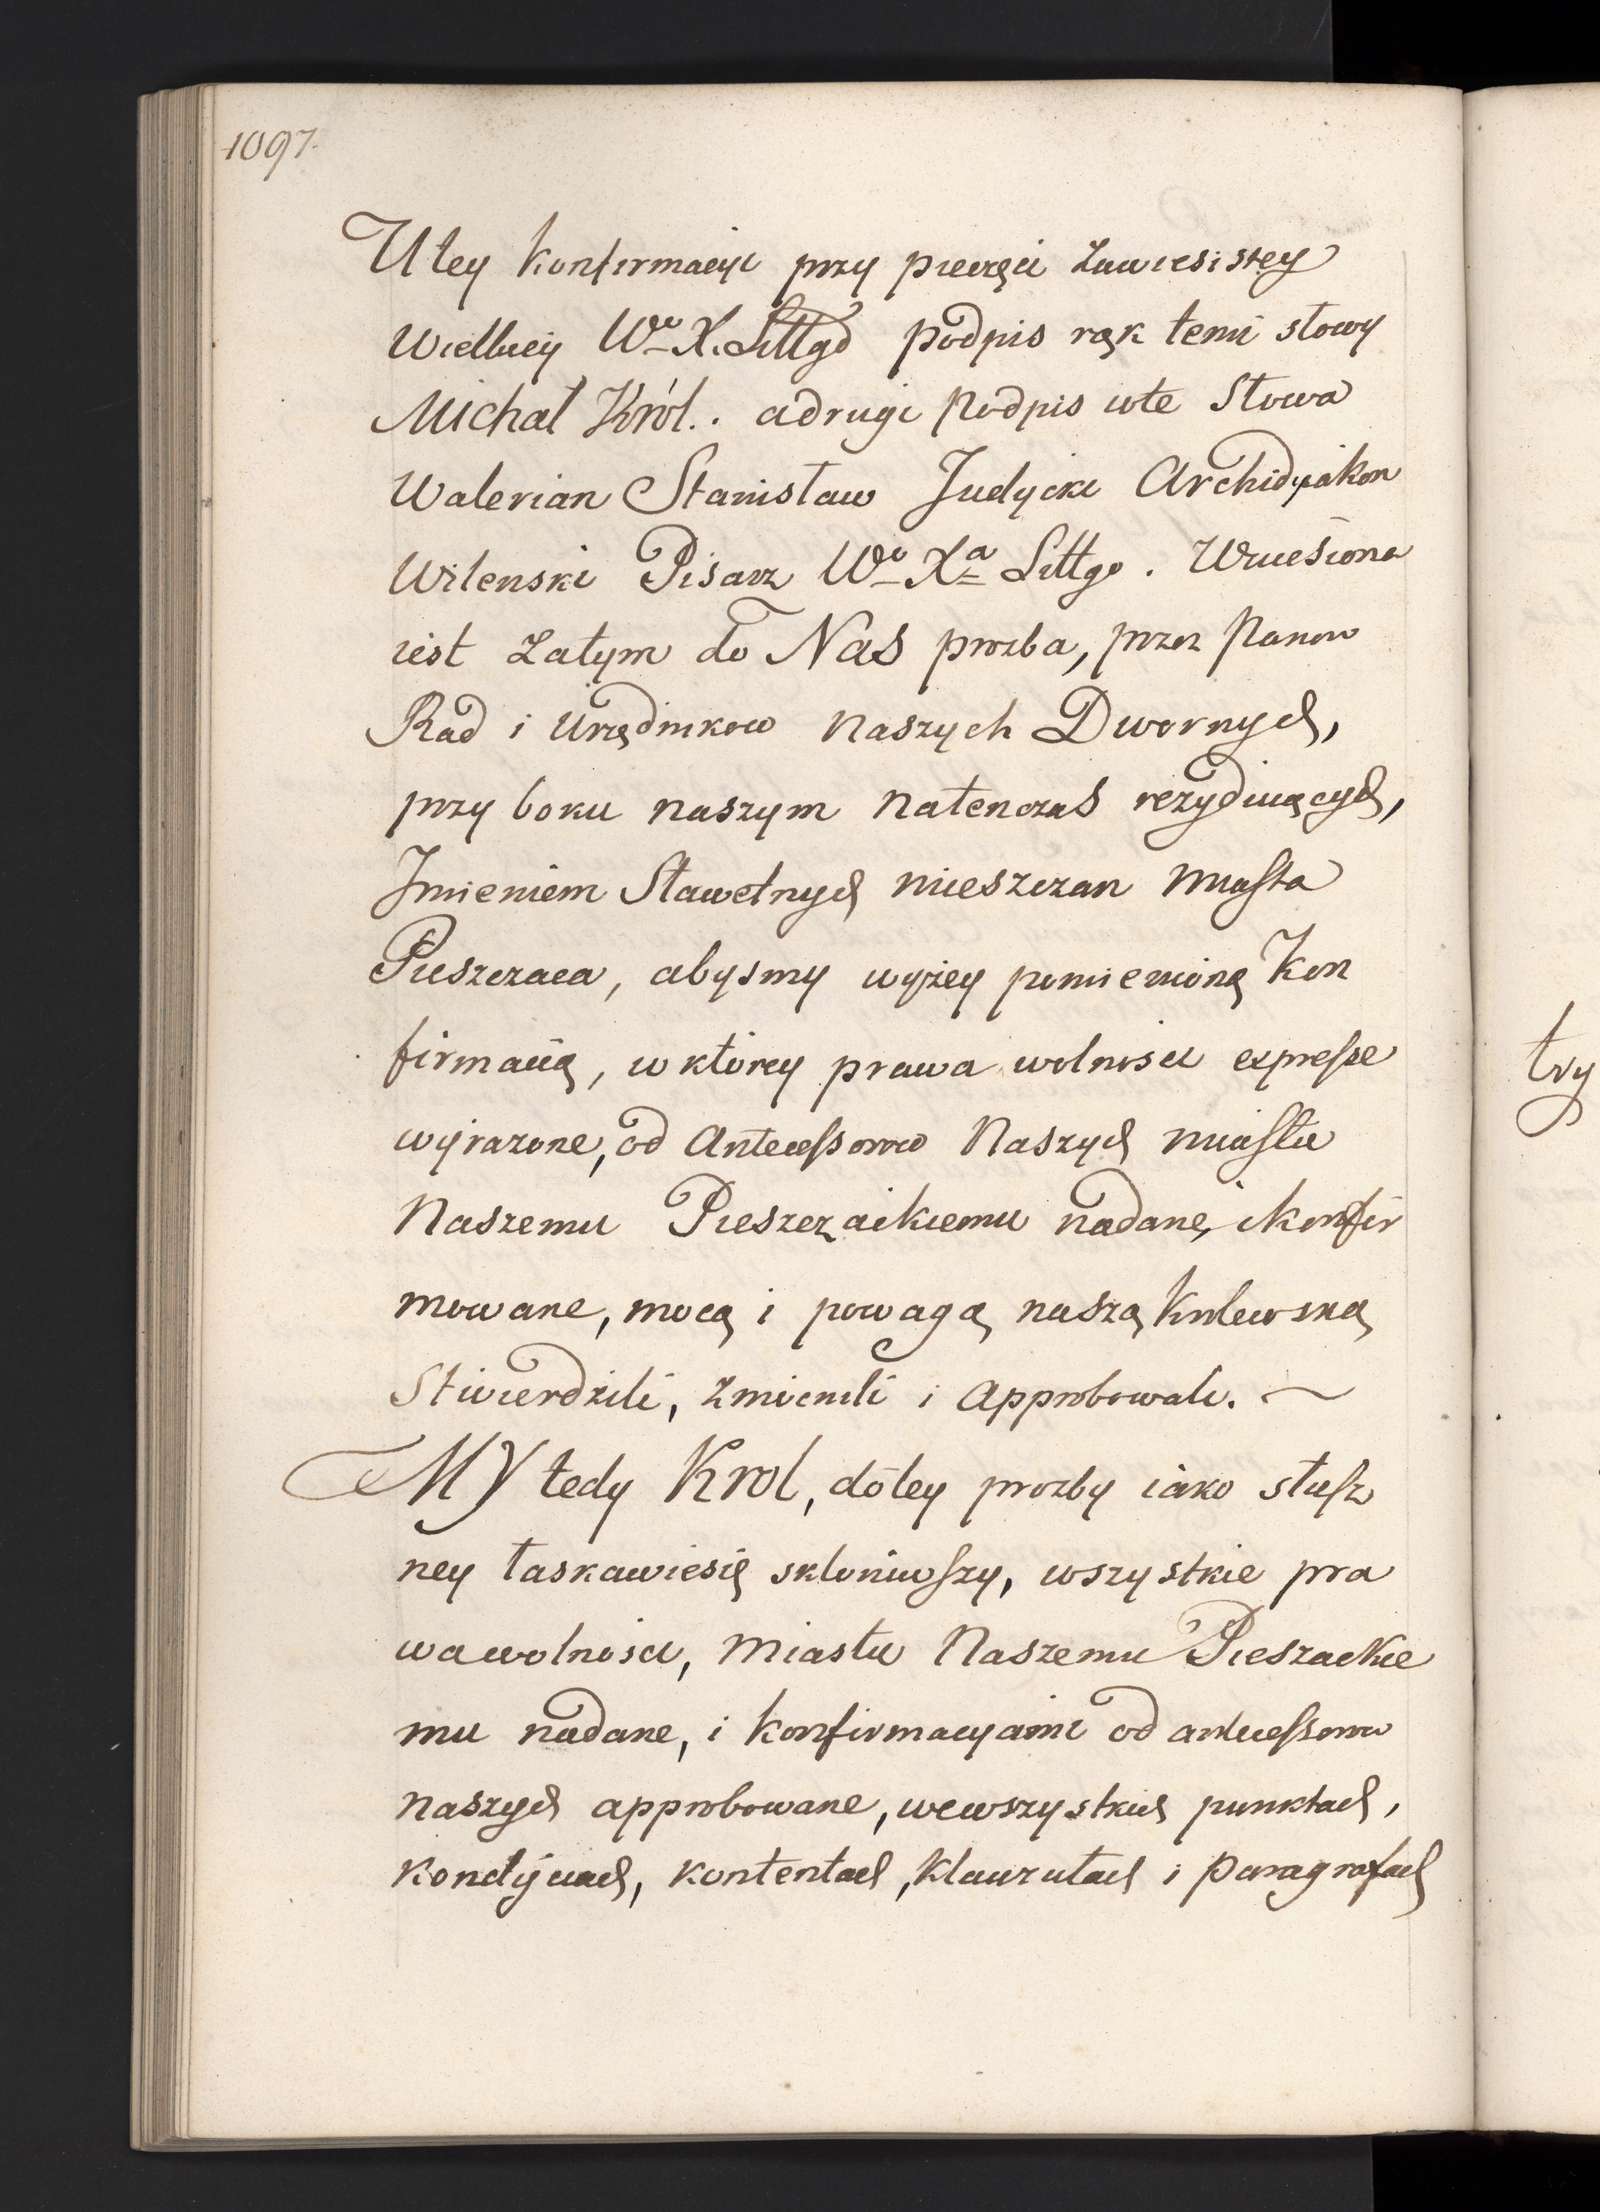 1097.
U tey konfirmacyi przy pieczęci zawiesistey
Wielkiey Wo X. Littgo podpis rąk temi słowy
Michał Król.. a drugi podpis w te słowa
Walerian Stanisław Judycki Archidyakon
Wilenski Pisarz Wo Xa Littgo. Wniesiona
iest zatym do Nas prozba, przez Panow
Rad i Urzędnikow Naszych Dwornych,
przy boku naszym natenczas rezyduiących,
Imieniem Sławetnych mieszczan miasta
Pieszczaca, abysmy wyżey pomienioną Kon
firmacią, w ktorey prawa wolnosci expresse
wyrazone, od Antecessorow Naszych miastu
Naszemu Pieszczackiemu nadane, i konfir
mowane, mocą i powagą naszą Krolewską
Stwierdzili, zmocnili i approbowali.
MY tedy Krol, do tey prozby iako słusz
ney łaskawie się skłoniwszy, wszystkie pra
wa wolnosci, Miastu Naszemu Pieszackie
mu nadane, i konfirmacyami od antecessorow
naszych approbowane, we wszystkich punktach,
kondycyach, kontentach, klauzułach i paragrafach
try